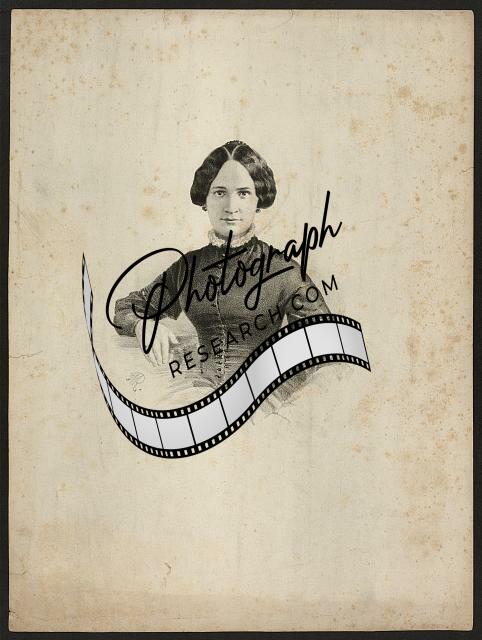 Photograph
RESEARCH.COM